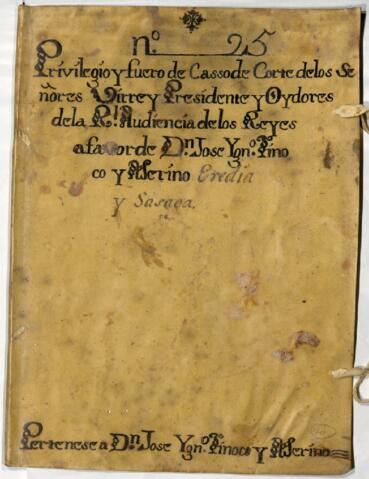 nº 25
Privilegio y fuero de Casso de Corte de los Se
ñores Virrey Presidente y Oydores
de la Rl Audiencia de los Reyes
a favor de Dn Jose Ygno Tino
co y Merino Eredia
y Sasaga.
Pertenese a Dn Jose Ygno Tinoco y Merino